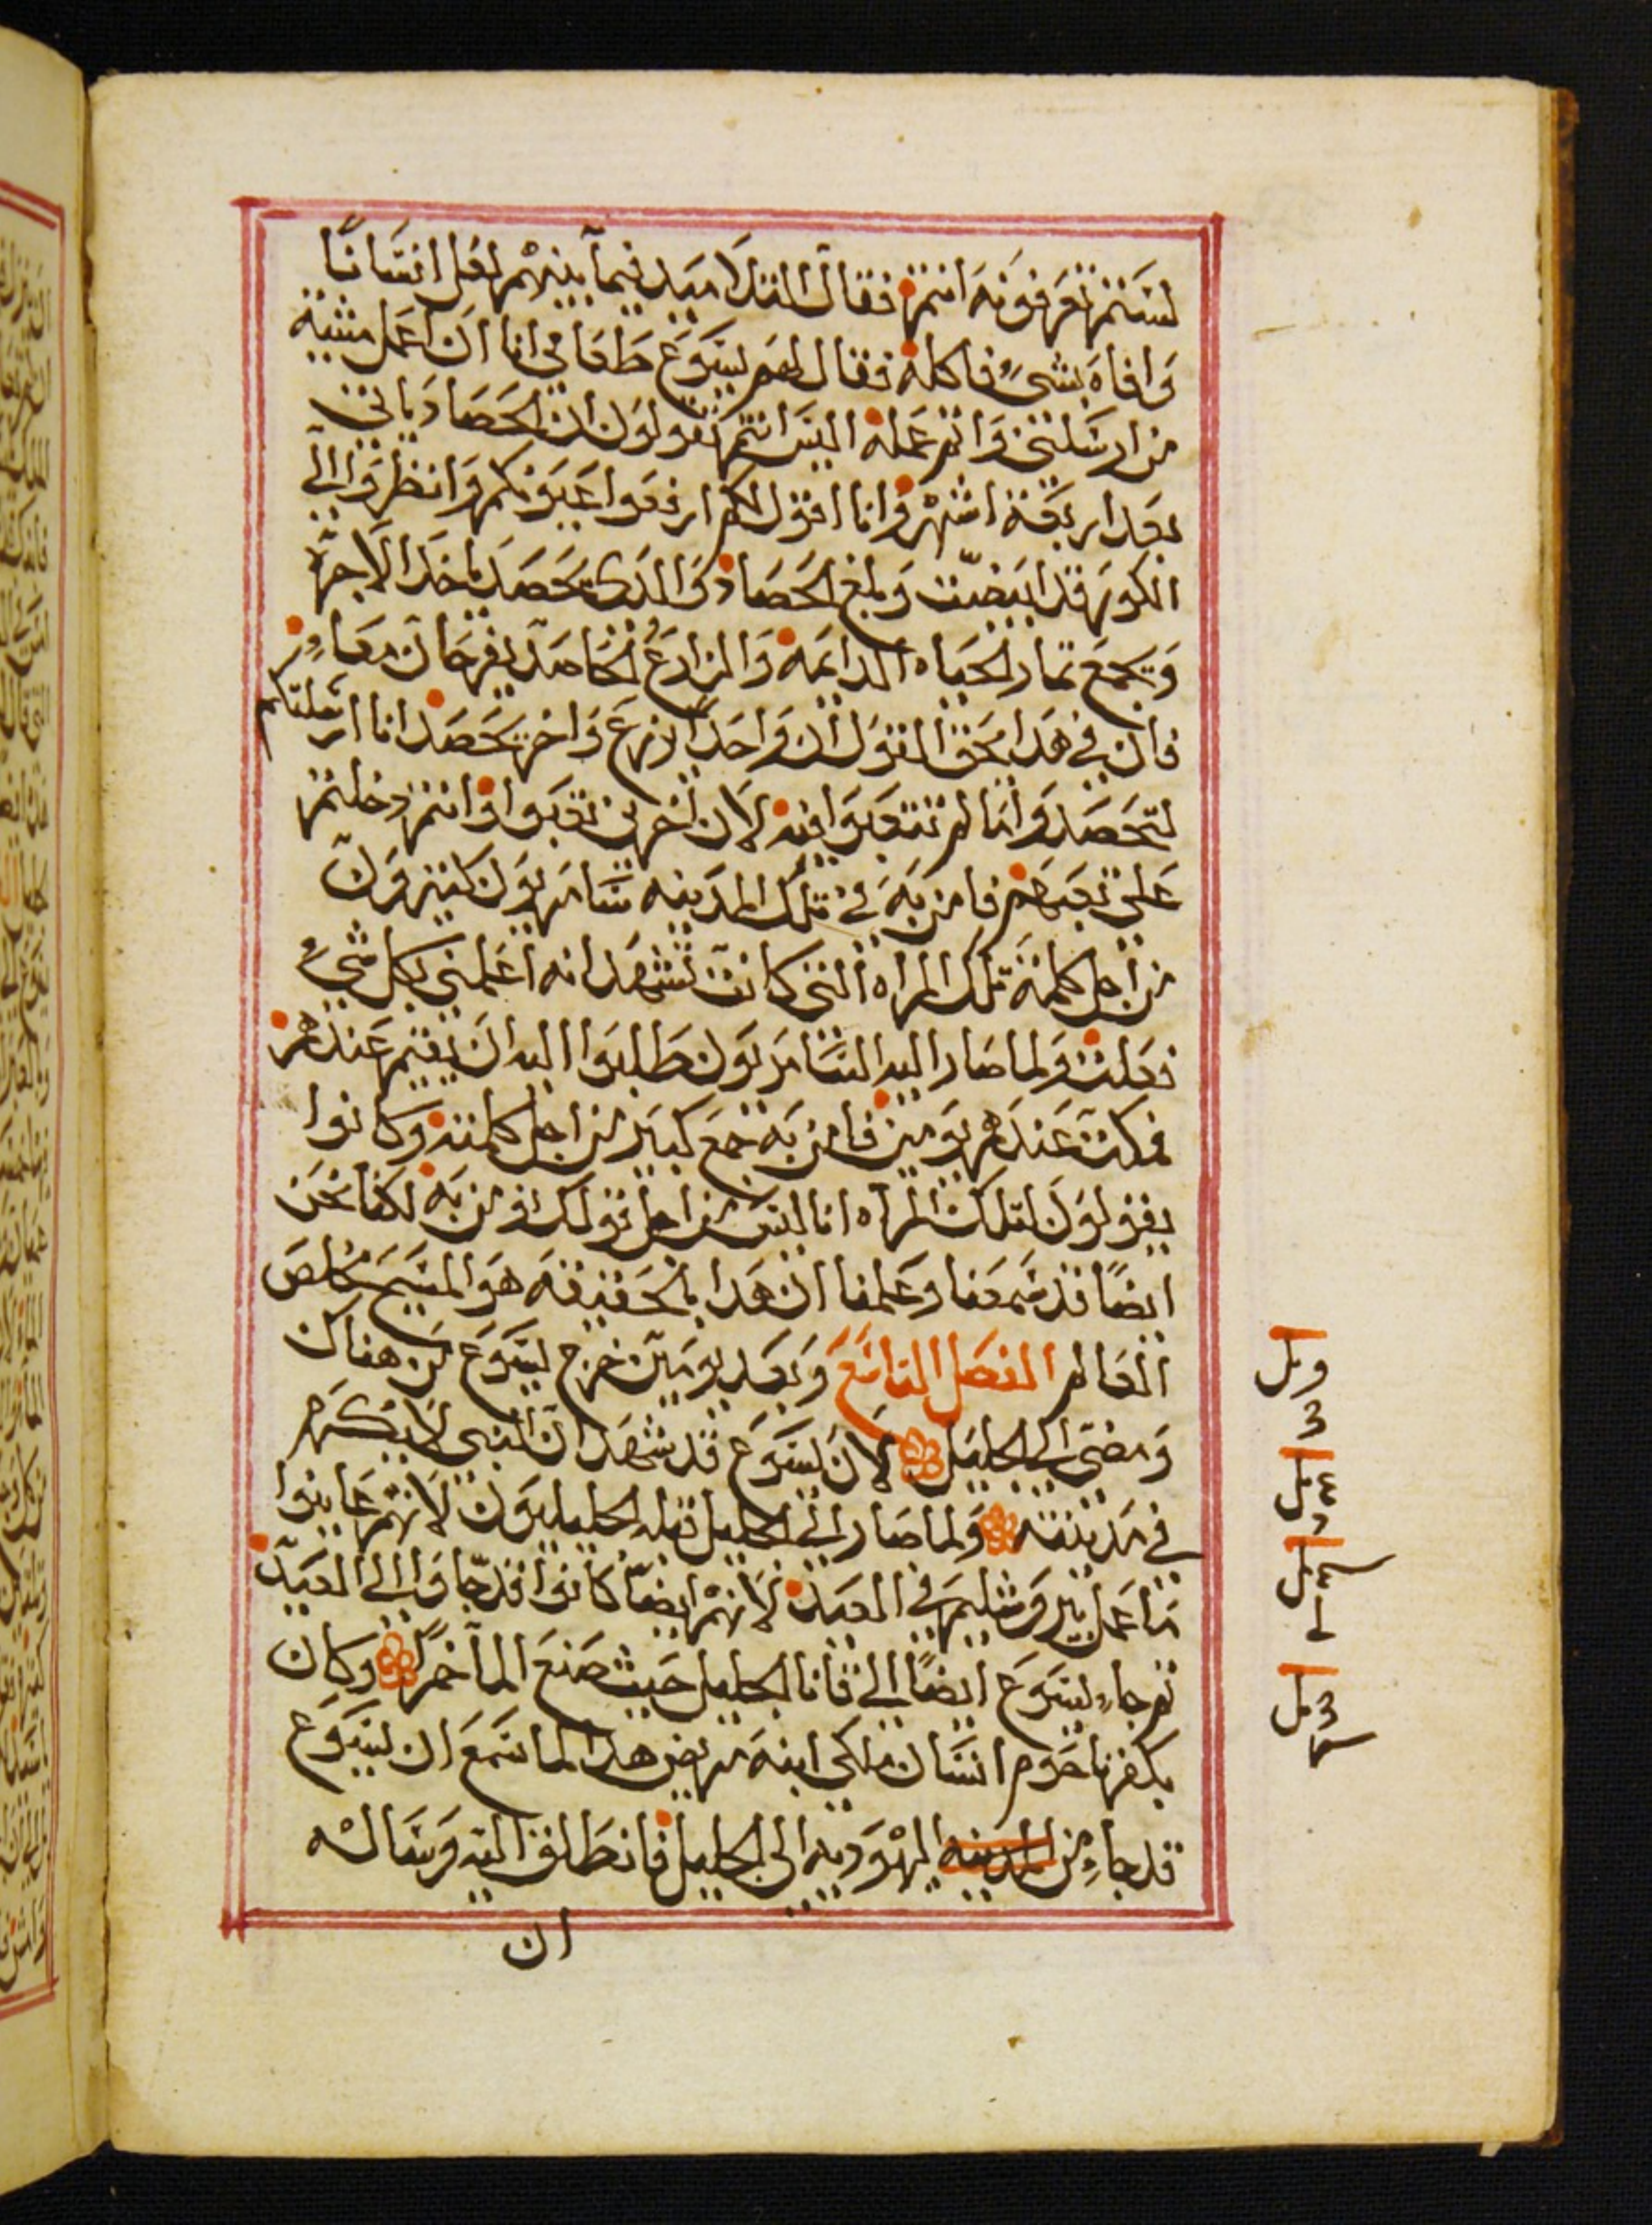 لستم تعرفونه انتم فقال التلاميد فيما بينهم لعل انسانًا
وافاه بشيء فاكله فقال لهم يسوع طعامي انا ان اعمل مشيه
من ارسلني واتم عمله اليس انتم تقولون ان الحصاد ياتي
بعد اربعة اشهر وانا اقول لكم ارفعوا عيونكم وانظروا الى
الكور قد ابيضت وبلغ الحصاد والدى يحصد ياخد الاجره
ويجمع تمار الحياه الدايمه والزارع الحاصد يفرحان معاء
فان في هدا يحق القول ان واحدًا يزرع واخر يحصد انا ارسلتكم
لتحصدوا ما لم تتعبوا فيه لان اخرين تعبوا وانتم دخلتم
على تعبهم فامن به في تلك المدينه سامريون كتيرون
من اجل كلمة تلك المراه التي كانت تشهد انه اعلمني بكل شيء
فعلت ولما صار اليه السامريون طلبوا اليه ان يقيم عندهم
فمكت عندهم يومين فامن به جمع كبير من اجل كلمته وكانوا
يقولون لتلك المراه انا ليس من اجل قولك نومن به لكنا نحن
ايضًا قد سمعنا وعلمنا ان هدا بالحقيقه هو المسيح مخلص
العالم الفصل التاسع وبعد يومين خرج يسوع من هناك
ومضى الى الجليل لان يسوع قد شهد ان النبي لا يكرم
في مدينته ولما صار الى الجليل قبله الجليليون لانهم عاينوا
ما عمل بيروشليم في العيد لانهم ايضًا كانوا قد جاوا الى العيد
تم جاء يسوع ايضًا الى قانا الجليل حيت صنع الما خمرًا وكان
بكفرناحوم انسان ملكي ابنه مريض هدا لما سمع ان يسوع
قد جاء من المدينه اليهوديه الى الجليل فانطلق اليه وساله
ان